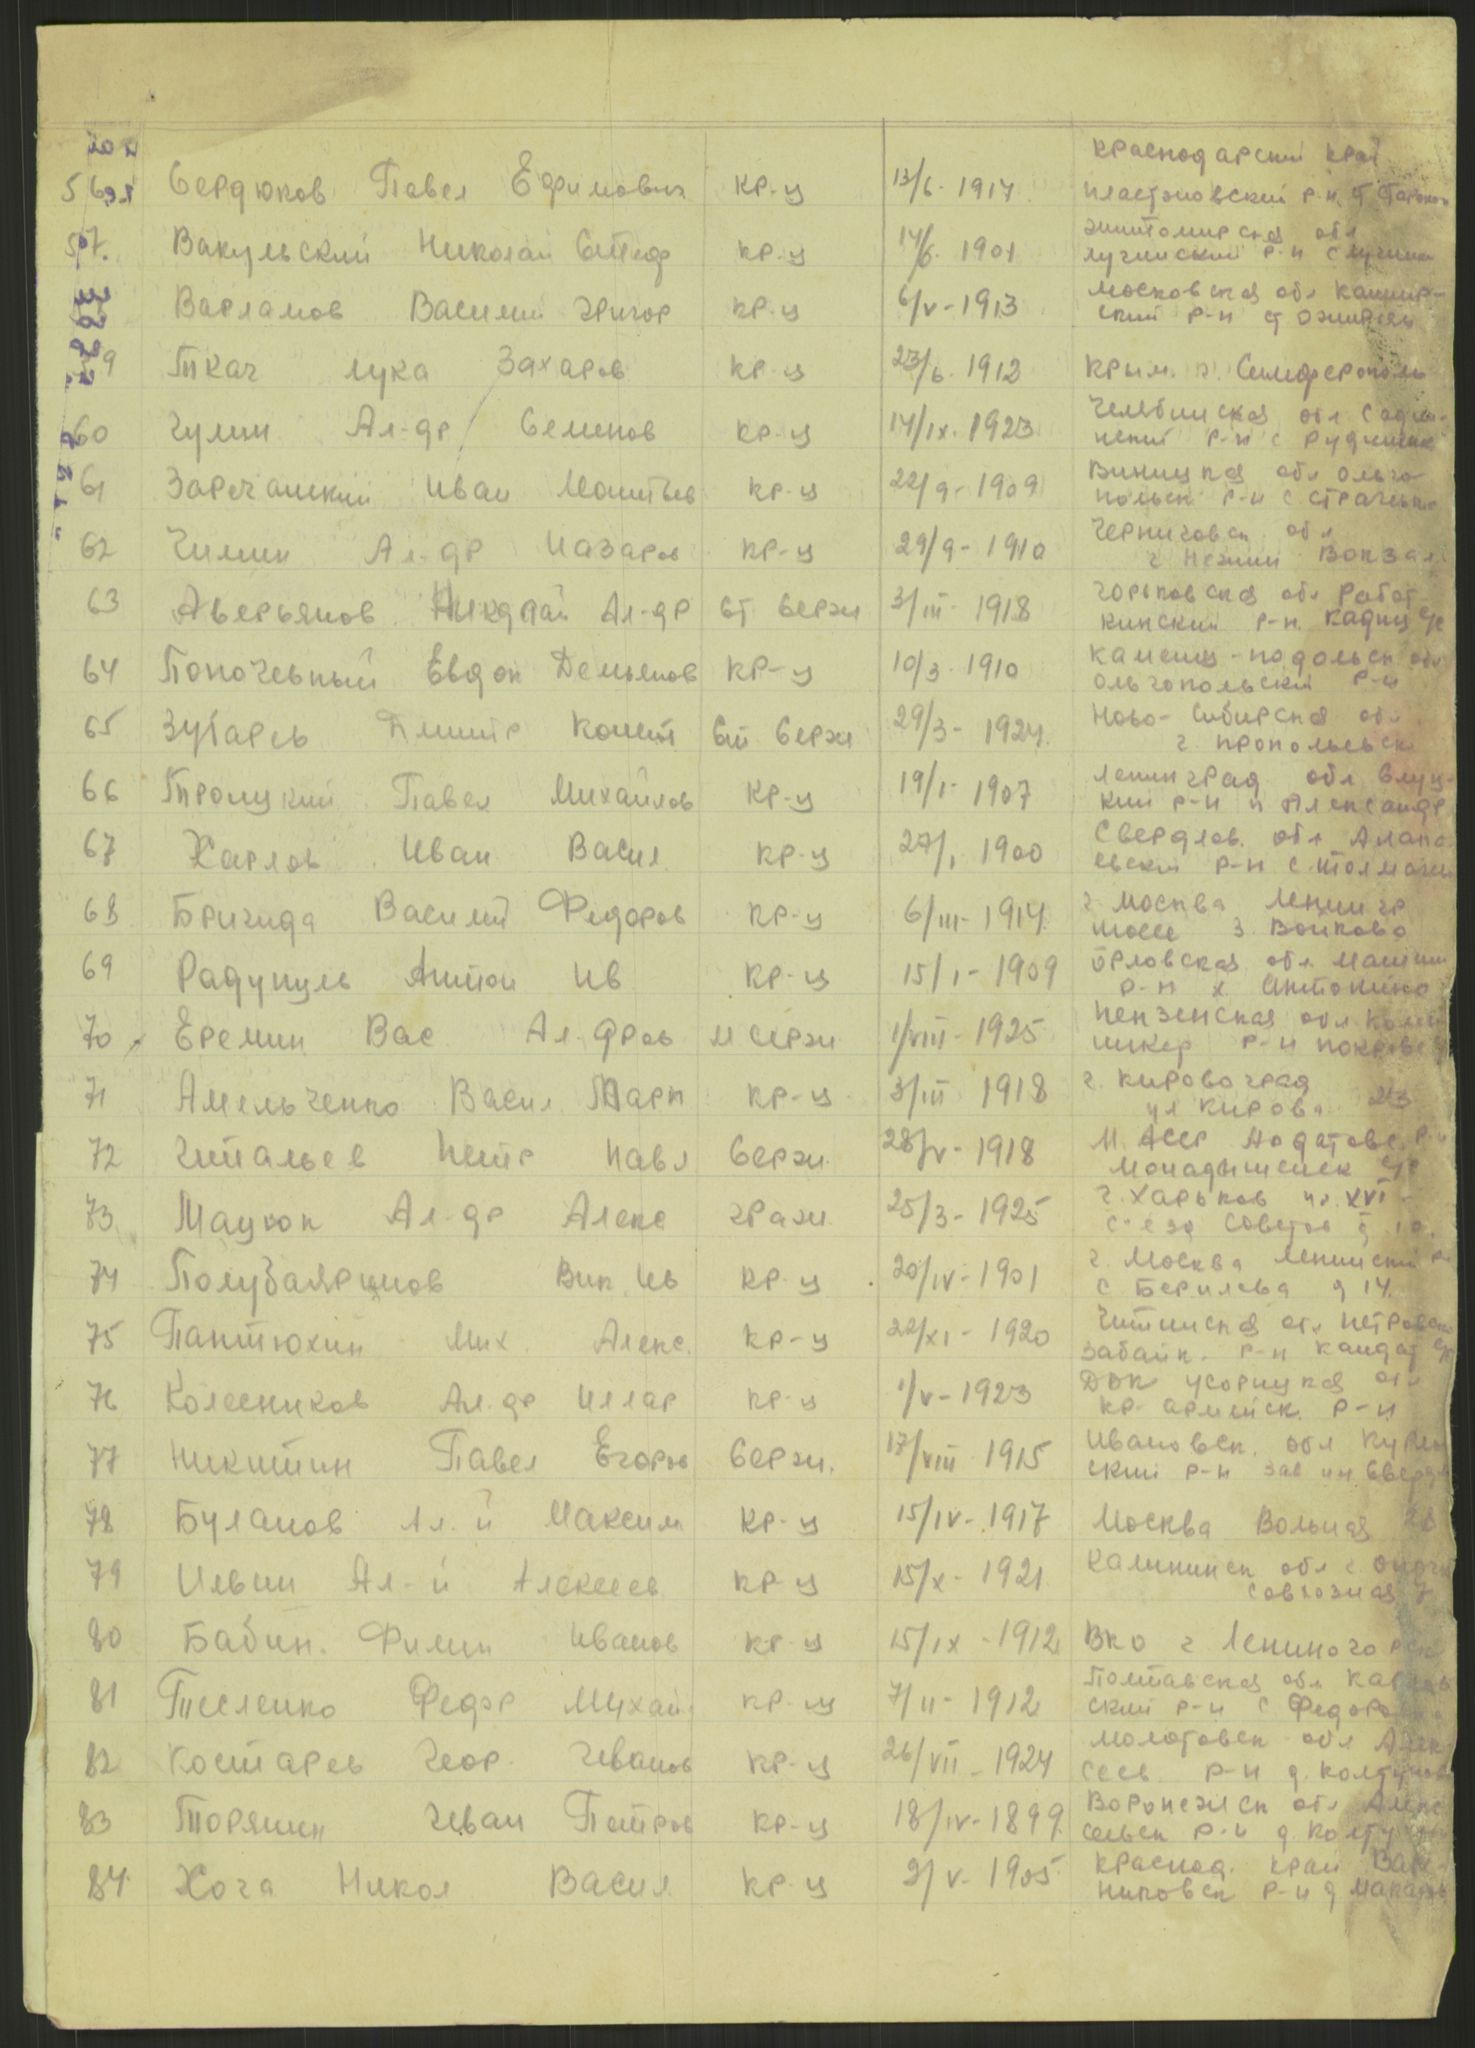 Краснодарский край
56 Сердюков Павел Ефимович кр-ц 13/6-1917 Пластуновский р-н
57. Вакульский Николай Стеф кр-ц 14/6-1901 Житомирская обл
лугинский р-н с лугины
Варламов Василий Григор кр-ц 6/V-1913 Московская обл Кашир-
ский р-н
9 Ткач лука Захаров кр-ц 23/6-1912 Крым. г. Симферополь
60 Чулин Ал-др Семенов кр-ц 14/IX-1923 Челябинская обл
р-н с Рудничн
61 Заречанский Иван кр-ц 22/9-1909 Виницкая обл Ольго-
польск р-н с
62 Чилин Ал-др Назаров кр-ц 29/9-1910 Черниговск обл
г Нежин Вокзал
63 Аверьянов Николай Ал-др ст сержн 3/III-1918 Горьковская обл Работ-
кинский р-н. Кадниц с/с
64 Поночевный Евдок Демьянов кр-ц 10/3-1910 Каменец-подольск обл
Ольгопольский р-н
65 Зубарев Дмитр Конст Ст сержн 29/3-1924 Ново-Сибирская обл
г. прокопьевск
66 Троицкий Павел Михайлов кр-ц 19/I-1907 Ленинград обл слуц-
кий р-н п Александр
67 Харлов Иван Васил кр-ц 27/I 1900 Свердлов. обл Алапа
евский р-н с. толмачи
68 Бригида Василий Федоров кр-ц 6/III-1914 г Москва Ленингр
шоссе з. Войково
69 Радунуль Антон Ив кр-ц 15/I-1909 Орловская обл
р-н х Антонино
70 Еремин Вас Ал-дров м сержн 1/VIII-1925 Пензенская обл
р-н
71 Амельченко Васил кр-ц 3/III 1918 г. Кировоград
ул Кирова 23
72 Читальев Петр Павл Сержн 28/V-1918 М. АССР р-н
с/с
73 Мацюк Ал-др Алекс гражн 25/3-1925 г. Харьков ул. XVI
с'езд Советов д 10.
74 Полубаяринов Вик Ив кр-ц 20/IV-1901 г. Москва Ленинский р
с Берилева д 14
75 Пантюхин Мих. Алекс. кр-ц 22/XI-1920 Читинская обл Петровско
Забайк. р-н
76 Колесников Ал-др Иллар кр-ц 1/V-1923 обл
кр-армейск. р-н
77 Никитин Павел Егоров Сержн. 17/VIII 1915 Ивановск. обл
ский р-н зав им Сверд
78 Буланов Ал-й Максим кр-ц 15/IV-1917 Москва Вольная 28
79 Ильин Ал-й Алексеев кр-ц 15/X-1921 Калининск обл г Опочк
Совхозная 7
80 Бабин. Филип Иванов кр-ц 15/IX-1912 Вко г Лениногорск
81 Тесленко Федор Михай кр-ц 7/II-1912 Полтавская обл Карлов
ский р-н с Федоровка
82 Костарев Геор. Иванов кр-ц 26/VII-1924 Молотовск обл
р-н д.
83 Торянин Иван Петров кр-ц 18/IV-1899 Воронежск обл Алек
сеевск р-н д.
84 Хоча Никол Васил кр-ц 2/V-1905 Краснод. край
р-н д